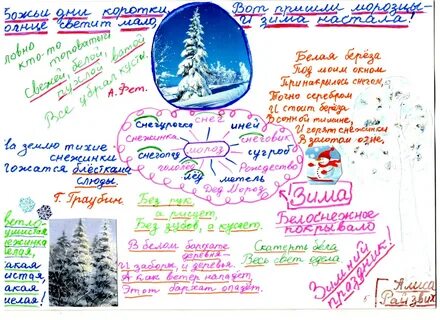 Божьи дни коротки,
солнце светит мало,
Вот пришли морозцы
И зима настала!
ловно
кто-то тороватый
Свежей, белой,
пухлой ватой
Все убрал кусты.
А. Фет.
Белая берёза
Под моим окном
Принакрылась снегом,
Точно серебром
И стоит берёза
В сонной тишине,
И горят снежинки
В золотом огне,
снег
Снегурочка
иней
снежинка
снеговик
мороз
снегопад
сугроб
гололёд
лёд
Рождество
метель
Дед Мороз
на землю тихие
снежинки
ложатся блёстками
слюды.
Г. Граубин.
Зима
Белоснежное
покрывало
Без рук
а рисует,
Без зубов, а кусает.
В белом бархате
деревья
И заборы, и деревья.
А как ветер нападет,
Этот бархат опадет.
Скатерть бела
Весь свет одела.
Зимний
праздник!
ветло-
ушистая
нежинка
елая,
акая
истая,
акая
мелая!
Алиса
Райзвих